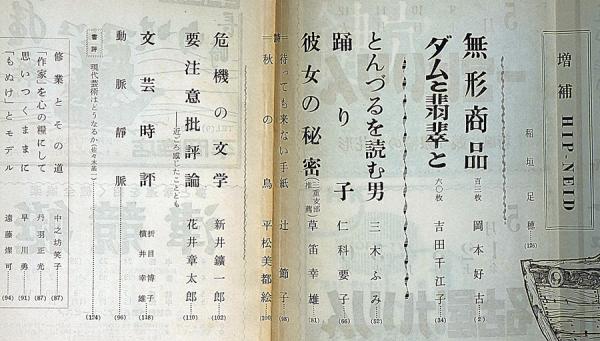 増補 HIP-NEID 稲垣足穂 (126)
無形商品 百三枚 岡本好古 (2)
ダムと翡翠と 六〇枚 吉田千江子 (34)
とんづるを読む男 三木ふみ (52)
踊り子 仁科要子 (66)
彼女の秘密 (三重支部推薦) 草笛幸雄 (81)
詩
待っても来ない手紙 辻節子 (98)
秋の鳥 平松美都絵 (100)
危機の文学 新井鑛一郎 (102)
要注意批評論 ―近ごろ感じたことども― 花井章太郎 (110)
文芸時評 折目博子 横井幸雄 (118)
動脈静脈 (96)
書評 現代芸術はどうなるか(佐々木基一) (124)
修業とその道 中之坊笑子 (87)
「作家」を心の糧にして 丹羽正光 (87)
思いつくままに 早川勇 (91)
「もぬけ」とモデル 遠藤燦可 (94)